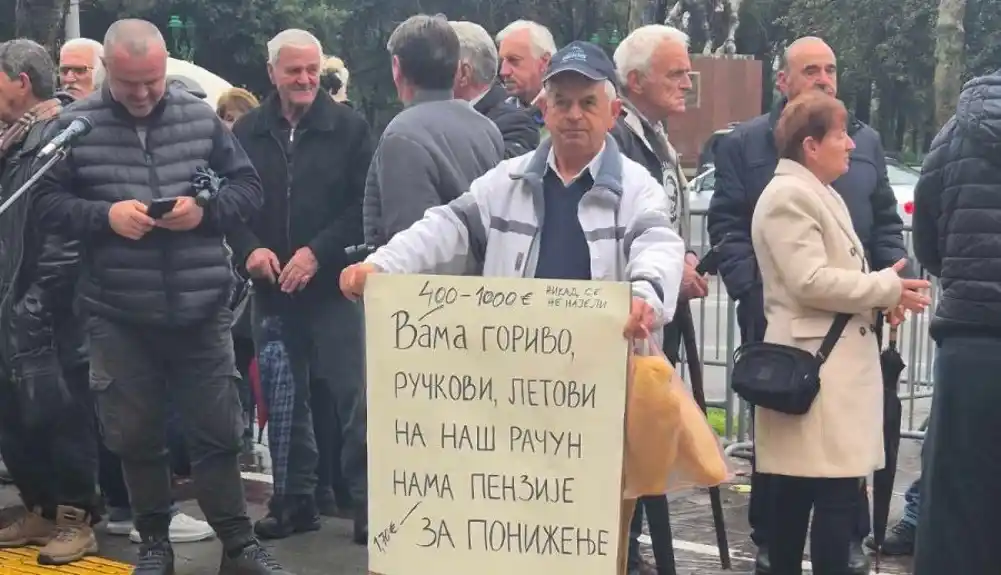 400-1000€ НИКАД СЕ
НЕ НАЈЕЛИ
ВАМА ГОРИВО,
РУЧКОВИ, ЛЕТОВИ
НА НАШ РАЧУН
НАМА ПЕНЗИЈЕ
1,70€ ЗА ПОНИЖЕЊЕ